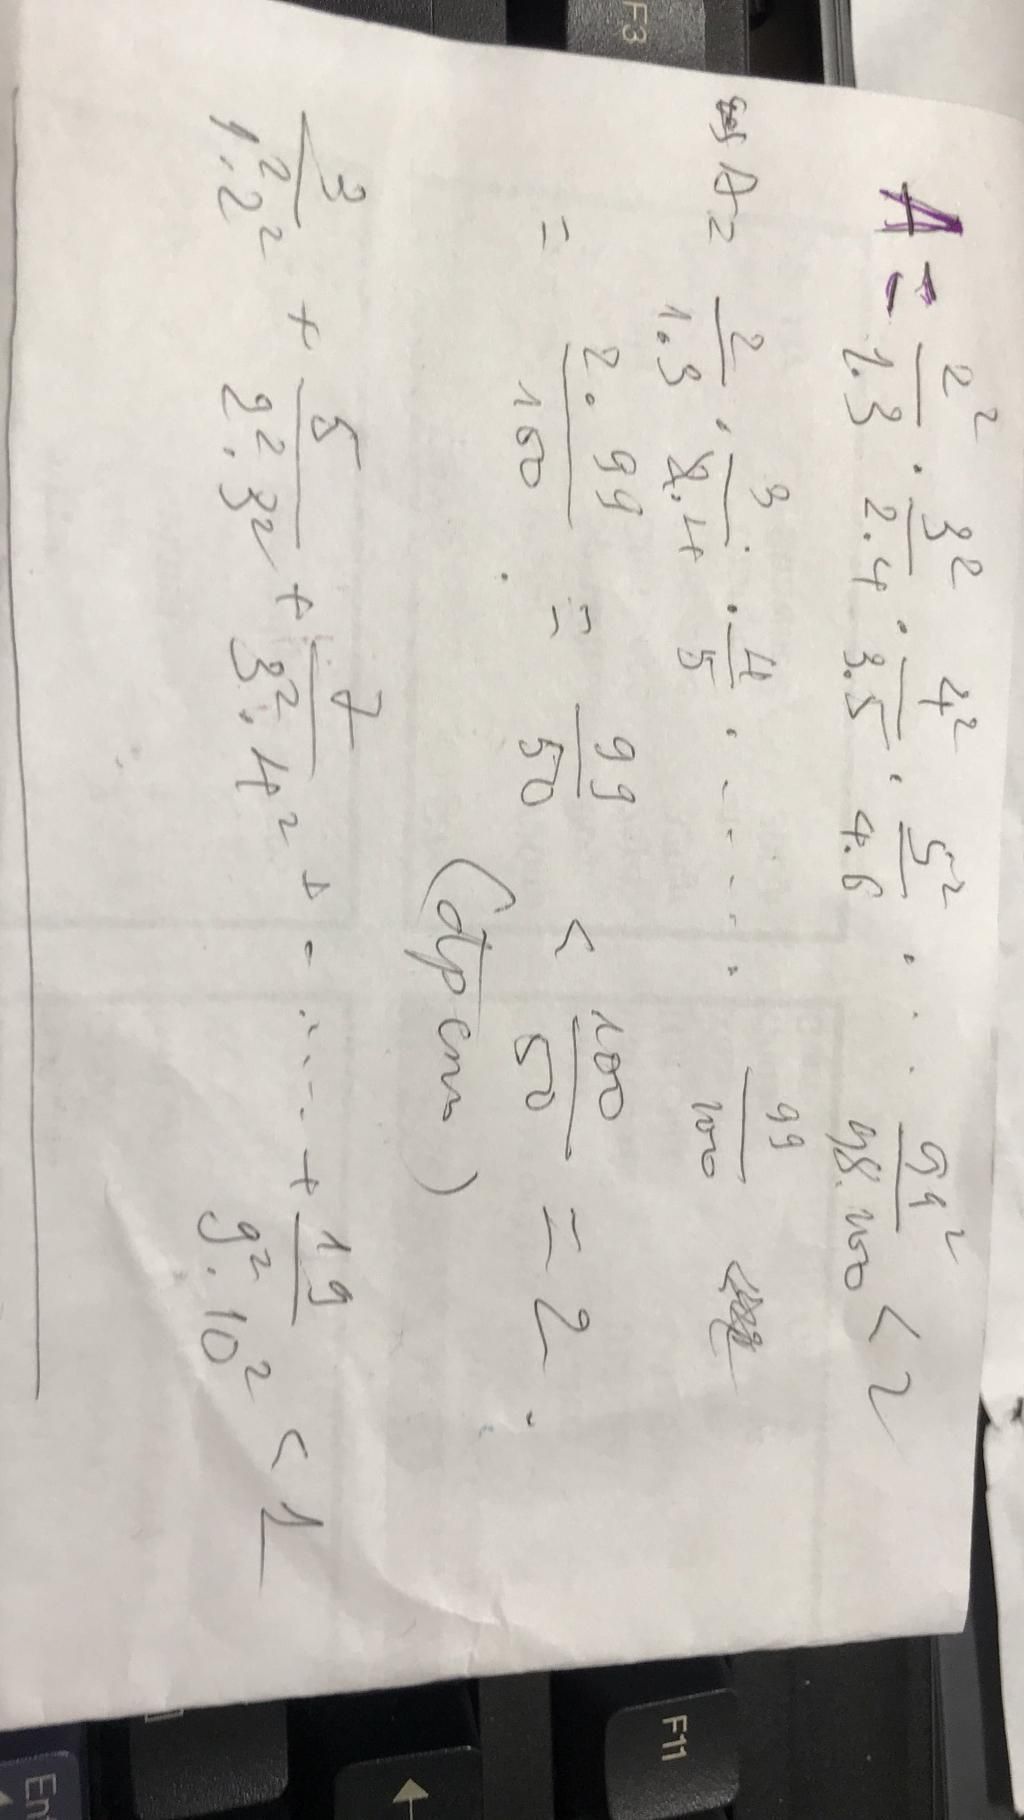 A = 2²/1.3 . 3²/2.4 . 4²/3.5 . 5²/4.6 . . . 99²/98.100 < 2
A = 2/1.3 . 3/2.4 . 4/5 . . . . . . 99/100
= 2.99/100 = 99/50 < 100/50 = 2.
(đpcm)
3/1².2² + 5/2².3² + 7/3².4² + ..... + 19/9².10² < 1
F3
F11
←
En